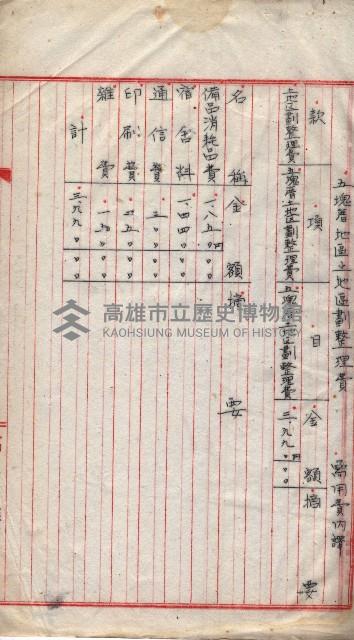 五塊厝地區土地區劃整理費 需用費內譯
款 項 目 金額 摘要
土地区劃整理費 五塊厝土地区劃整理費 五塊厝土地区劃整理費 三、九九〇円〇〇
名稱 金額 摘要
備品消耗品費 一、八五〇円〇〇
宿舍料 一、四四〇〇〇
通信費
印刷費
雜費
計 三、九九〇〇〇
高雄市立歷史博物館
KAOHSIUNG MUSEUM OF HISTORY